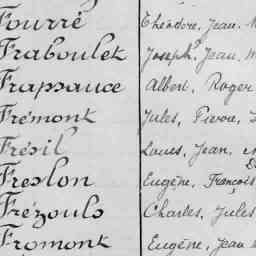 Fourré Théodore, Jean,
Fraboulet Joseph, Jean, M
Frapsauce Albert, Roger
Frémont Jules, Pierre, L
Frésil Louis, Jean,
Freslon Eugène, François
Frézouls Charles, Jules
Fromont Eugène, Jean